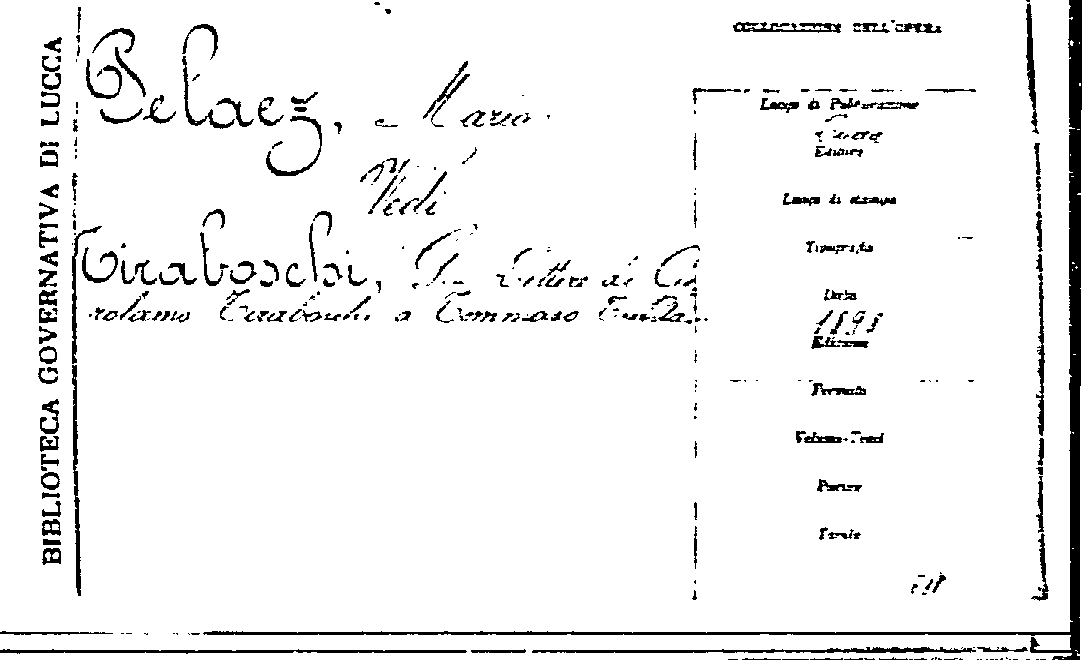 BIBLIOTECA GOVERNATIVA DI LUCCA
Pelaez, Mario
Vedi
Tiraboschi, Lettere di Gi
rolamo Tiraboschi a Tommaso
COLLOCAZIONE DELL'OPERA
Luogo di Pubblicazione
Editore
Luogo di stampa
Tipografia
Data
1898
Edizione
Formato
Volume-Tomi
Partee
Tavole